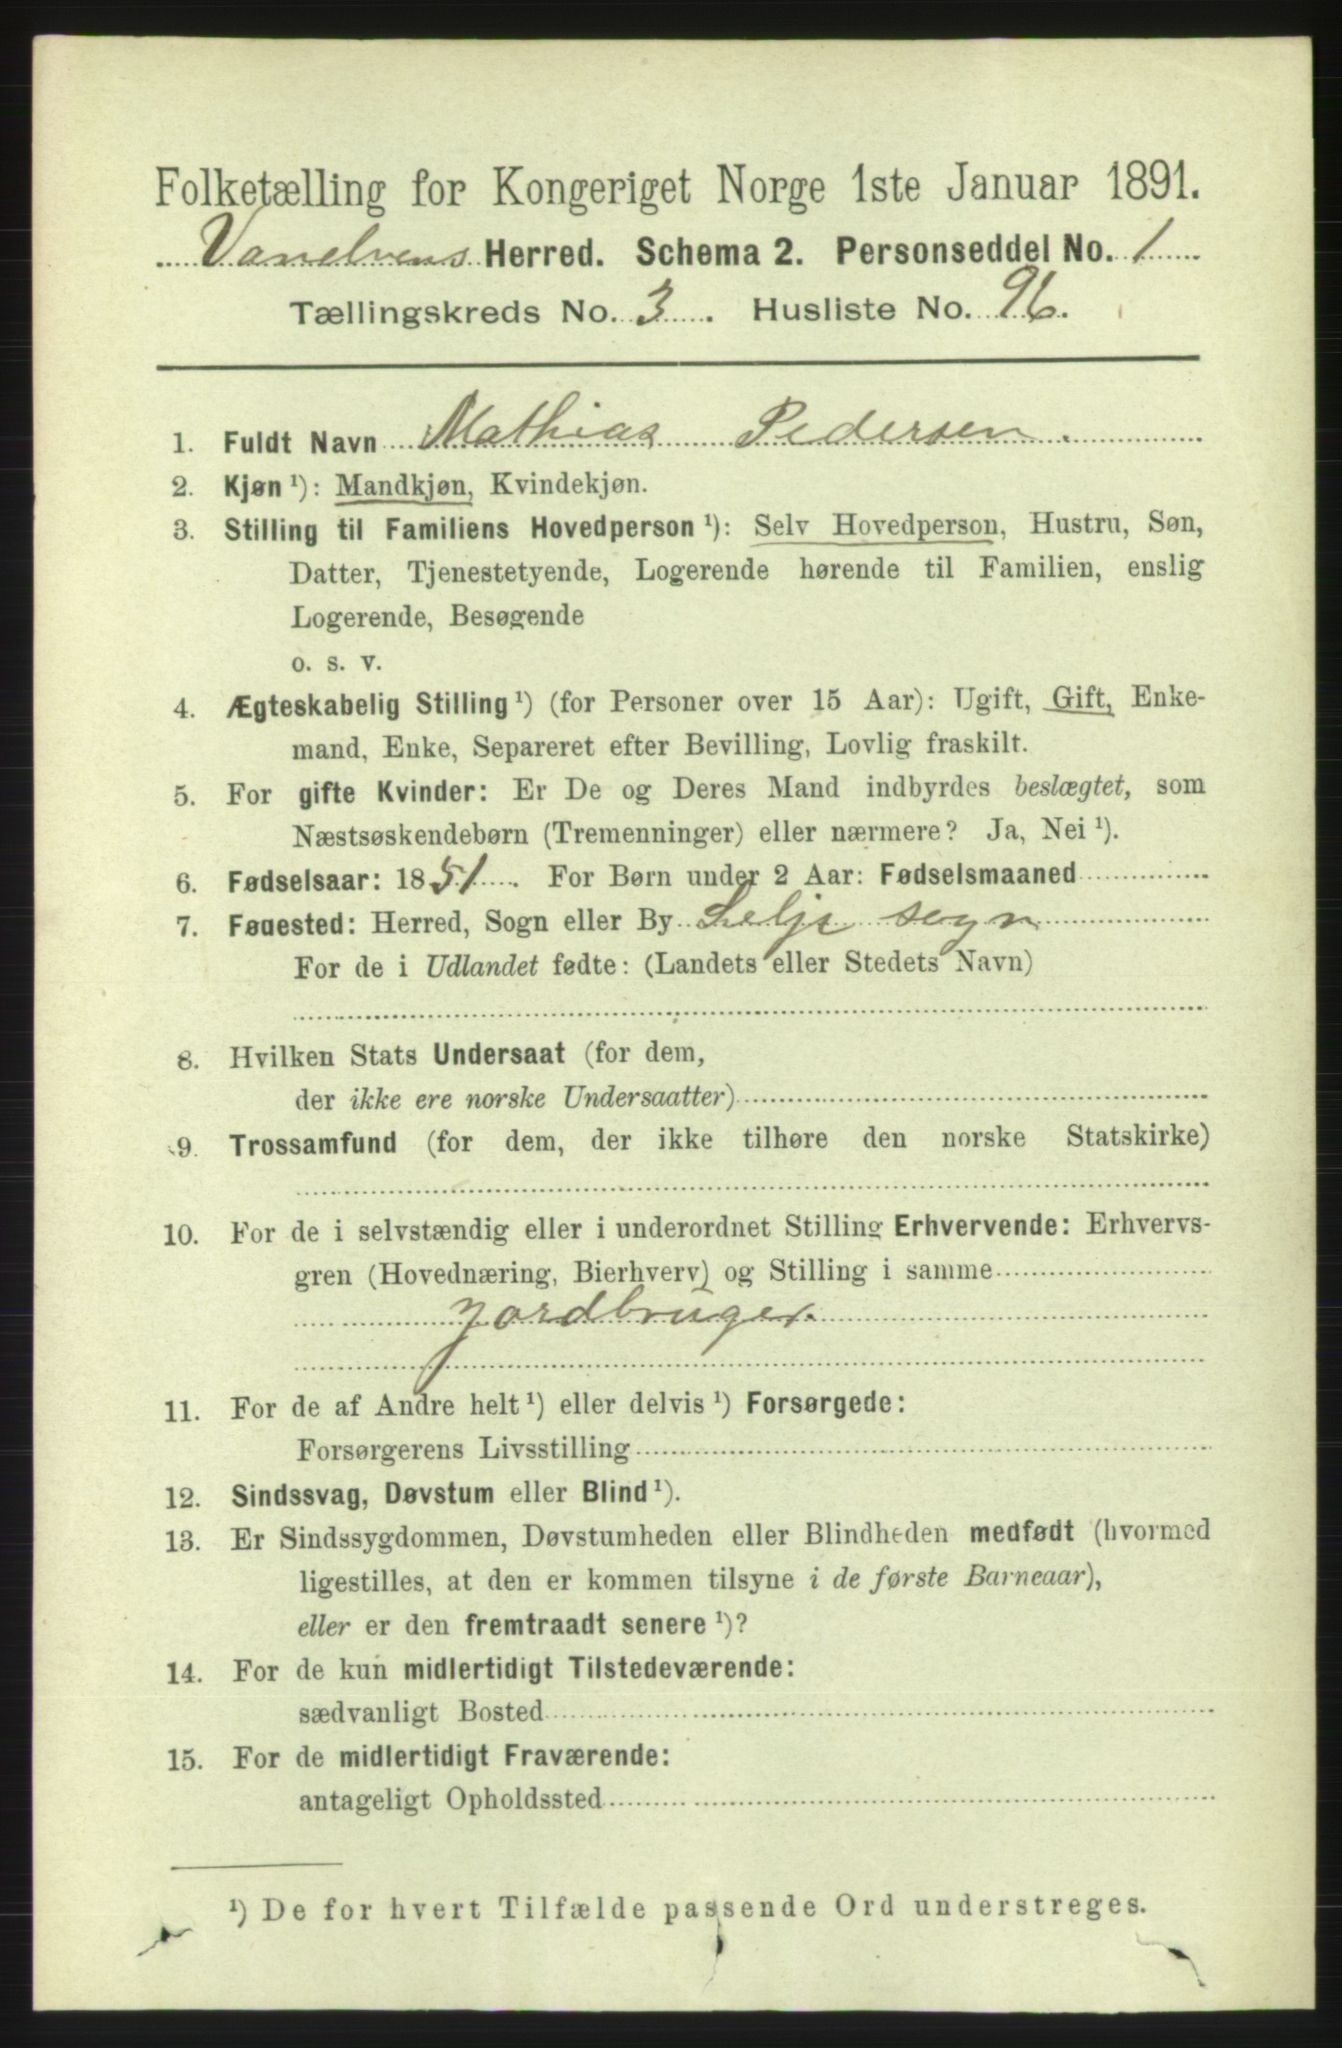 Folketælling for Kongeriget Norge 1ste Januar 1891.
Vanelvens Herred. Schema 2. Personseddel No. 1
Tællingskreds No. 3. Husliste No. 96.
1. Fuldt Navn Mathias Pedersen.
2. Kjøn ¹): Mandkjøn, Kvindekjøn.
3. Stilling til Familiens Hovedperson ¹): Selv Hovedperson, Hustru, Søn,
Datter, Tjenestetyende, Logerende hørende til Familien, enslig
Logerende, Besøgende
o. s. v.
4. Ægteskabelig Stilling ¹) (for Personer over 15 Aar): Ugift, Gift, Enke-
mand, Enke, Separeret efter Bevilling, Lovlig fraskilt.
5. For gifte Kvinder: Er De og Deres Mand indbyrdes beslægtet, som
Næstsøskendebørn (Tremenninger) eller nærmere? Ja, Nei ¹).
6. Fødselsaar: 1851. For Børn under 2 Aar: Fødselsmaaned
7. Føđested: Herred, Sogn eller By Selje sogn
For de i Udlandet fødte: (Landets eller Stedets Navn)
8. Hvilken Stats Undersaat (for dem,
der ikke ere norske Undersaatter)
9. Trossamfund (for dem, der ikke tilhøre den norske Statskirke)
10. For de i selvstændig eller i underordnet Stilling Erhvervende: Erhvervs-
gren (Hovednæring, Bierhverv) og Stilling i samme
Jordbruger.
11. For de af Andre helt ¹) eller delvis ¹) Forsørgede:
Forsørgerens Livsstilling
12. Sindssvag, Døvstum eller Blind ¹).
13. Er Sindssygdommen, Døvstumheden eller Blindheden medfødt (hvormed
ligestilles, at den er kommen tilsyne i de første Barneaar),
eller er den fremtraadt senere ¹)?
14. For de kun midlertidigt Tilstedeværende:
sædvanligt Bosted
15. For de midlertidigt Fraværende:
antageligt Opholdssted
¹) De for hvert Tilfælde passende Ord understreges.